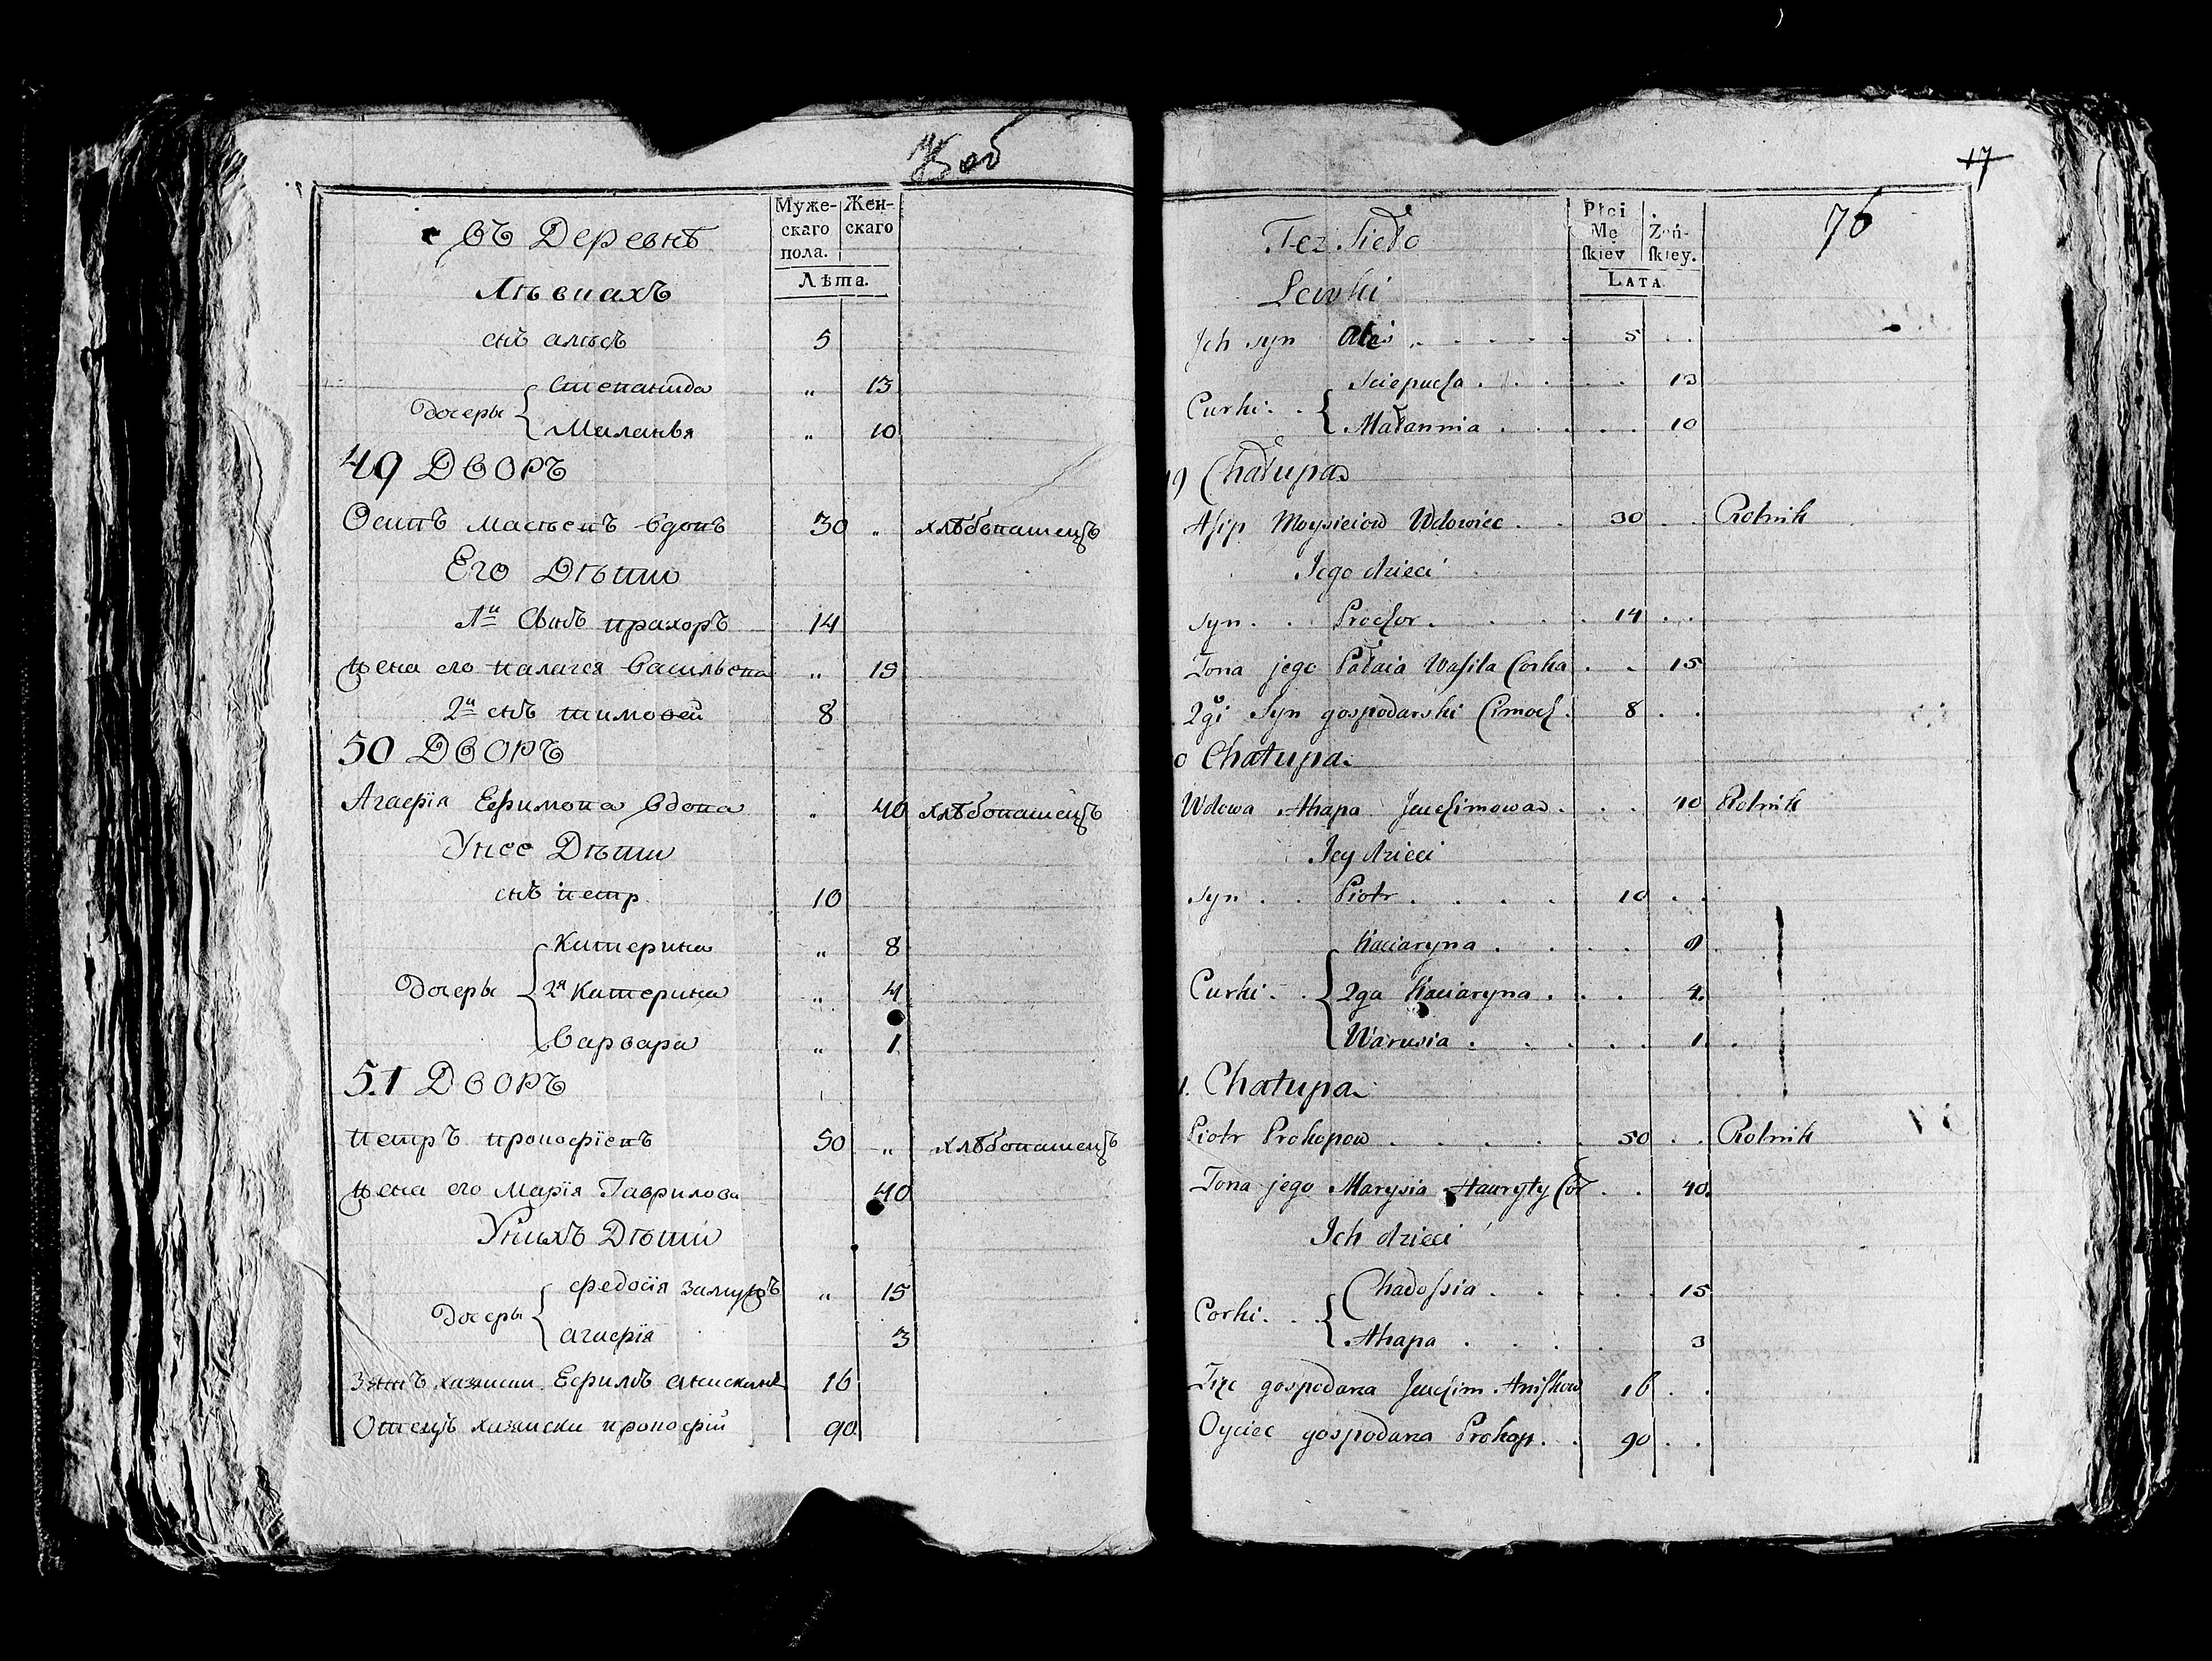 въ Деревнѣ
Лѣвпахъ
Муже-
скаго
пола.
Жен-
скаго
Лѣта.
снъ алѣсъ 5
Дочеры { Степанида " 13
Миланья " 10
49 Дворъ
Осипъ масѣепъ вдопъ 30 " хлѣбопашецъ
Его Дѣти
1й Сынъ прахоръ 14
жена его палагея васильепа " 15
2й снъ тимоѳей 8
50 Дворъ
Агафія Ефимопа вдопа " 40 хлѣбопашецъ
Унее Дѣти
снъ петр 10
Дочеры { Катерина " 8
2я Катерина " 4
варвара " 1
51 Дворъ
петръ прокофіепъ 50 " хлѣбопашецъ
жена его марія Гаврилова 40
Унихъ Дѣти
Дочеры { федосія замужъ " 15
агафія 3
Зять хазяиски Ефимъ 16
Отецъ хазяиски прокофій 90
17
76
Też Sieło
Lewki
Płci
Mę
ſkiey
Żeń-
ſkiey.
Lata
Jch syn Ałes 5
Curki { Sciepucha 13
Małannia 10
9 Chałupa
Aſip Moysieiow Wdowiec 30 Rolnik
Jego dzieci
Syn Prochor 14
Żona jego Pałaia Waſila Corka 15
2gi Syn gospodarski Cimoch 8
0 Chałupa
Wdowa Ahapa Jeuchimowa 40 Rolnik
Jey dzieci
syn Piotr 10
Curki { Kaciaryna 8
2ga Kaciaryna 4
Warusia 1
1. Chałupa
Piotr Prokopow 50 Rolnik
Żona jego Marysia Hauryły Cor 40
Jch dzieci
Corki { Chadoſsia 15
Ahapa 3
Zięc gospodarza Jeuchim Aniſkow 16
Oyciec gospodarza Prokop 90